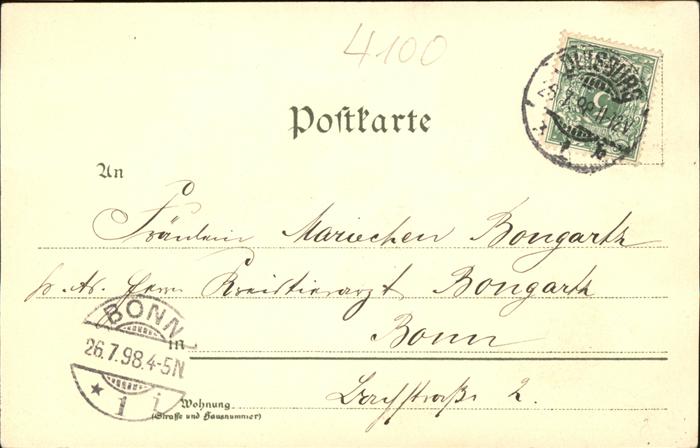 4100
DUISBURG
25.7.98.11-12V.
* 1 k
5
Postkarte
An
Fräulein Mariechen Bongartz
p. Ad. Herrn Kreistierarzt Bongartz
Bonn
BONN
26.7.98.4-5N
* 1 i
in
Wohnung
(Straße und Hausnummer)
Bachstraße 2.